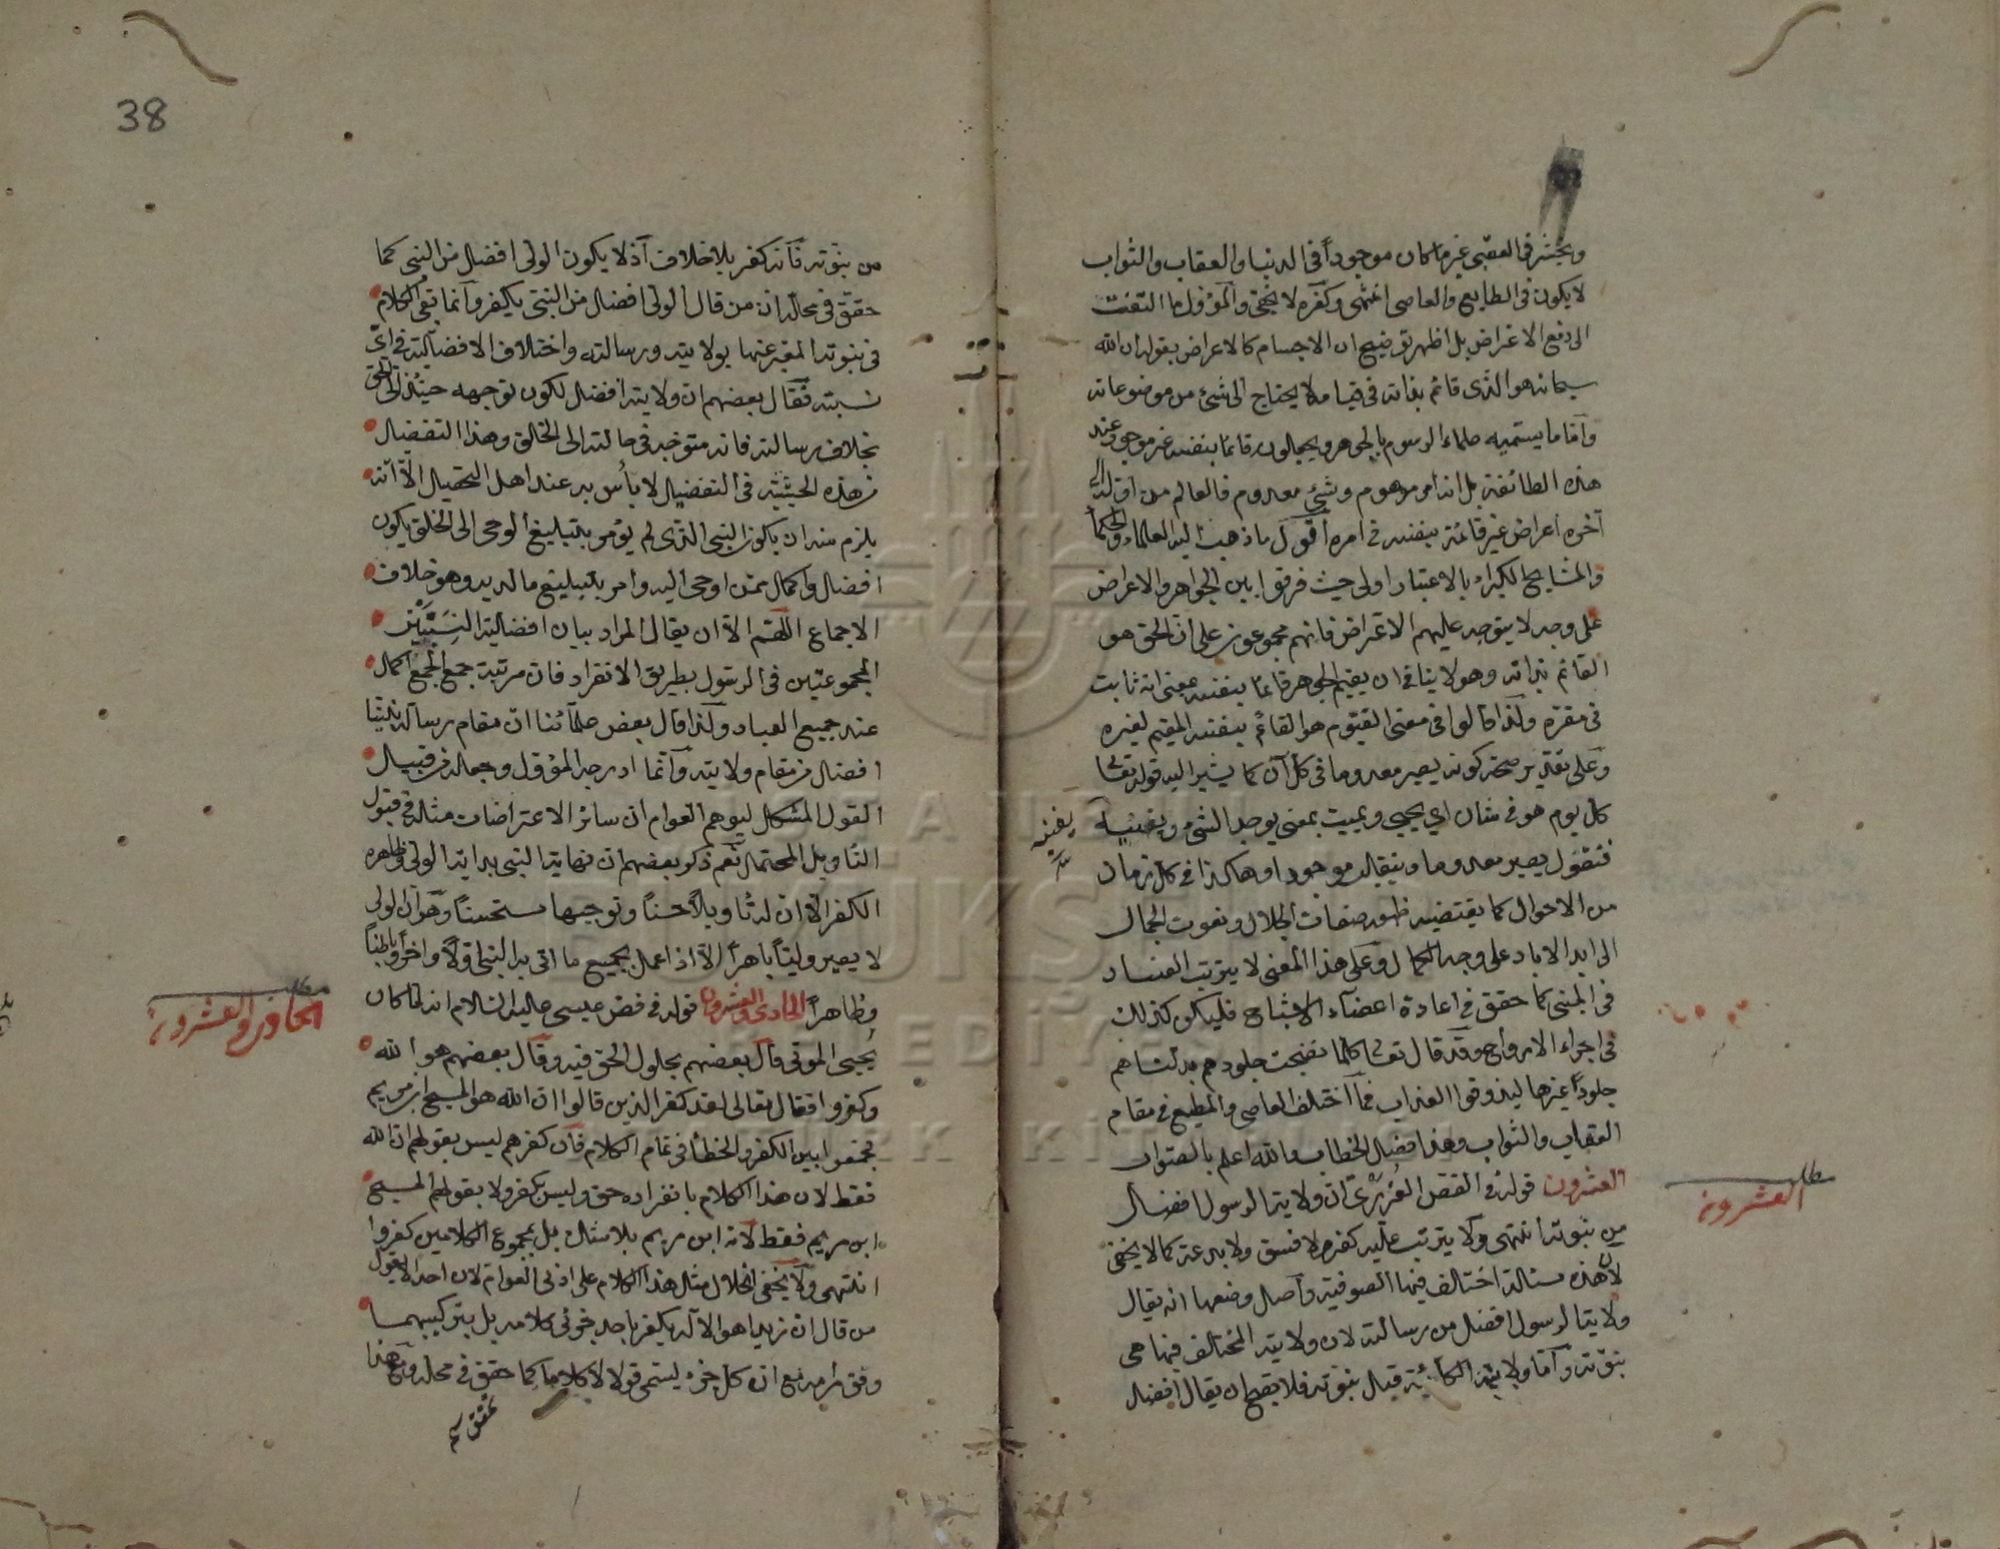 ويحشر في العقبى غير ما كان موجوداً في الدنيا والعقاب والثواب
لا يكون في الطايع والعاصي انتهى وكفره لا يخفى والمؤول ما التفت
الى دفع الاعتراض بل اظهر توضيح ان الاجسام كالاعراض بقوله ان الله
سبحانه هو الذي قائم بذاته في قيامه لا يحتاج الى شئ من موضوعاته
واما ما يسميه علماء الرسوم بالجوهر ويجعلونه قائما بنفسه غير موجود عند
هذه الطائفة بل انه امر موهوم وشئ معدوم فالعالم من اوله الى
آخره اعراض غير قائمة بنفسه في امره أقول ما ذهب اليه العلماء والحكما
والمشايخ الكبراء بالاعتبار اولى حيث فرقوا بين الجواهر والاعراض
على وجه لا يتوجه عليهم الاعتراض فانهم مجموعون على ان الحق هو
القائم بذاته وهو لا ينافي ان يقيم الجوهر قائما بنفسه بمعنى انه ثابت
في مقره ولذا قالوا في معنى القيوم هو القائم بنفسه المقيم لغيره
وعلى تقدير صحة كونه يصير معدوما في كل آن كما يشير اليه قوله تعالى
كل يوم هو في شان اي يحيى ويميت بمعنى يوجد الشئ ويفنيه
يفنيه
فنقول يصير معدوما وينقلب موجودا وهكذا في كل زمان
من الاحوال كما يقتضيه ظهور صفات الجلال ونعوت الجمال
الى ابد الاباد على وجه الكمال وعلى هذا المعنى لا يترتب الفساد
في المبنى كما حقق في اعادة اعضآء الاشباح فليكن كذلك
في اجراء الارواح وقد قال تعالى كلما نضجت جلودهم بدلناهم
جلوداً غيرها ليذوقوا العذاب فما اختلف العاصي والمطيع في مقام
العقاب والثواب وهذا فصل الخطاب والله اعلم بالصواب
العشرون قوله في الفص العُزيري ان ولاية الرسول افضل
مطلب العشرون
من نبوته انتهى ولا يترتب عليه كفر ولا فسق ولا بدعة كما لا يخفى
لان هذه مسئالة اختالف فيها الصوفية واصل وضعها انه يقال
ولاية الرسول افضل من رسالته لان ولايته المختالف فيها هي
نبوته وآما ولايته الكائنة قبل نبوته فلا يصح ان يقال افضل
38
من نبوته فآنه كفر بلا خلاف آذ لا يكون الولي افضل من النبي كما
حقق في محله ان من قال الولي افضل من النبي يكفر وآنما بقي الكلام
في نبوته المعبر عنها بولايته ورسالته واختلاف الافضلية في اي
نسبته فقال بعضهم ان ولايته افضل لكون توجهه حينئذ الى الحق
بخلاف رسالته فانه متوجه في حالته الى الخالق وهذا التفضيل
من هذه الحيثية في التفضيل لا بأس به عند اهل التحصيل الا انه
يلزم منه ان يكون النبي الذي لم يؤمر بتبليغ الوحي الى الخلق يكون
افضل واكمل ممن اوحى اليه وامر بتبليغ ما لديه وهو خلاف
الاجماع اللهم الا ان يقال المراد بيان افضلية النسبتين
المجموعتين في الرسول بطريق الانفراد فان مرتبة جمع الجمع اكمل
عند جميع العباد ولذا قال بعض علمآئنا ان مقام رسالة نبينا
افضل من مقام ولايته وآنما ادرجه المؤول وجعله من قبيل
القول المشكل ليوهم العوام ان سائر الاعتراضات مثله في قبول
التاويل المحتمل نعم ذكر بعضهم ان نهاية النبي بداية الولي وظاهره
الكفر الا ان له تاويلاً حسناً وتوجيها مستحسناً وهو ان الولي
لا يصير ولياً باهراً الا اذ اعمل بجميع ما اتى به النبي اولاً وآخراً وباطناً
وظاهراً الحادي والعشرون قوله في فص عيسى عليه السلام انه لما كان
مطلب الحادى والعشرون
يُحيى الموتى قال بعضهم بحلول الحق فيه وقال بعضهم هو الله
وكفروا فقال تعالى لقد كفر الذين قالوا ان الله هو المسيح ابن مريم
فجمعوا بين الكفر والخطأ في تمام الكلام فان كفرهم ليس بقولهم ان الله
فقط لان هذا الكلام بانفراده حق وليس بكفر ولا بقولهم المسيح
ابن مريم فقط لانه ابن مريم بلا مثال بل بمجموع الكلامين كفروا
انتهى ولا يخفى انحلال مثل هذا الكلام على ادنى العوام لان احدا لا يقول
من قال ان زيدا هو الاله يكفر باحد جزئي كلامه بل بتركيبهما
وفق مرامه مع ان كل جزء يسمى قولا لا كلاما كما حقق في محله ومع هذا